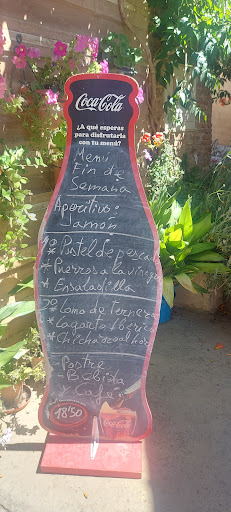 Coca-Cola
¿A qué esperas
para disfrutarla
con tu menú?
Menú
Fin de
Semana
Aperitivo:
Jamón
1º * Pastel de pescado
* Puerros a la vinagre
* Ensaladilla
2º * Lomo de ternera
* Lagarto Iberico
* Chicharro al hor
- Postre
- Bebida
y Café
18'50
Coca-Cola